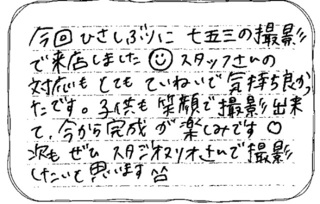 今回ひさしぶりに七五三の撮影
で来店しました☺スタッフさんの
対応もとてもていねいで気持ち良かっ
たです。子供も笑顔で撮影出来
て、今から完成が楽しみです○
次もぜひスタジオマリオさんで撮影
したいと思います^^